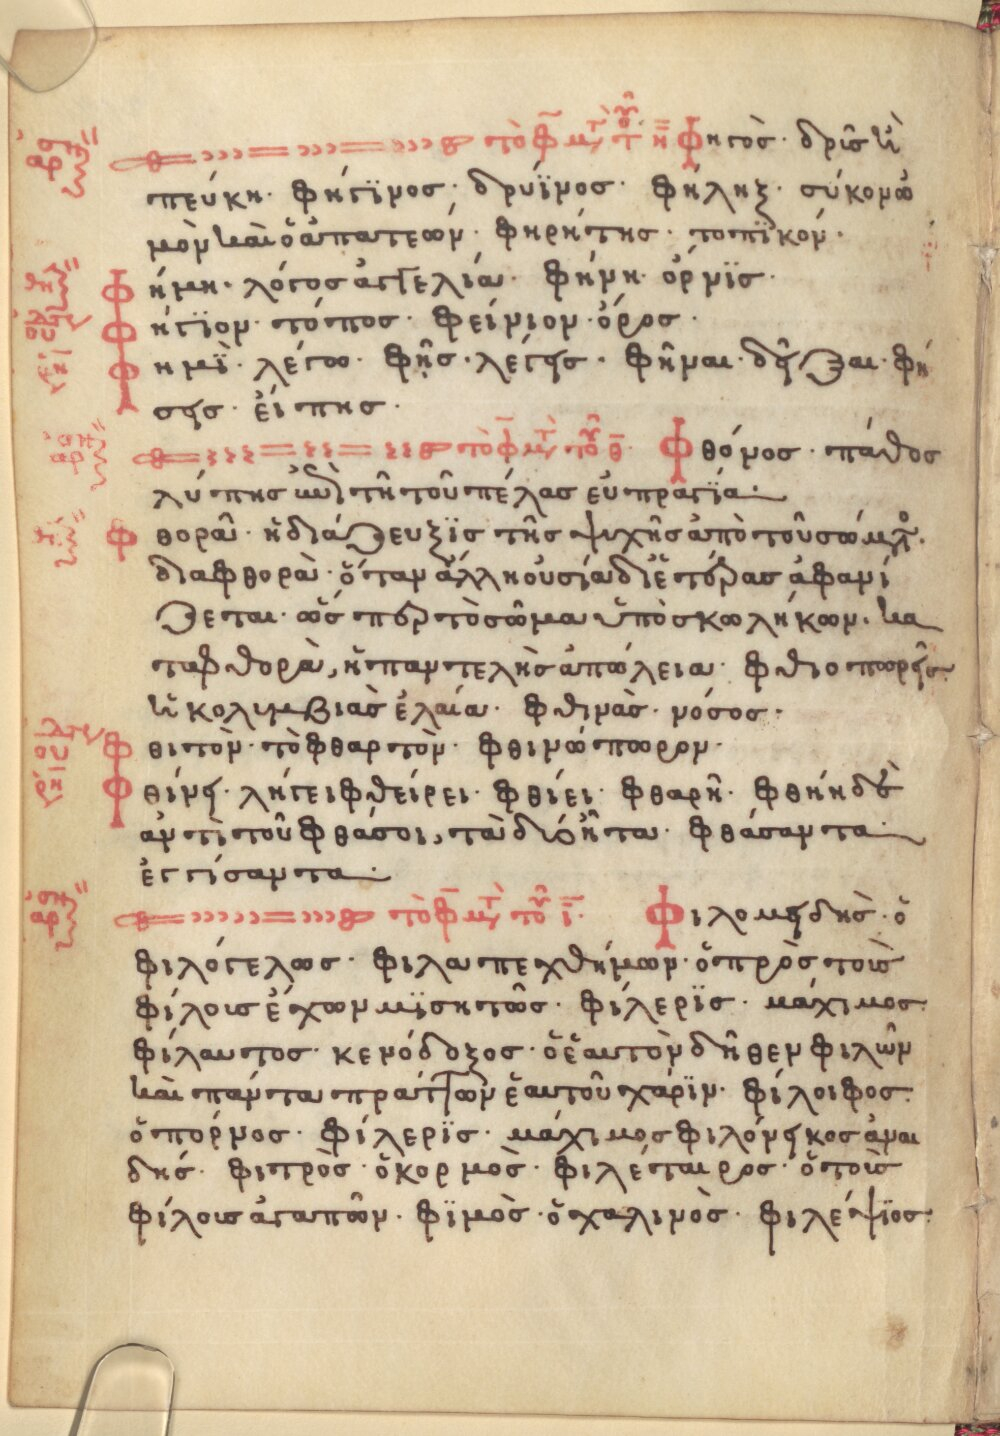 τὸ φ̅ μτ̀ τοῦ η̅ Φηγὸς · δρῦς ἢ
πεύκη · φήγϊνος · δρύϊνος · φήληξ · σύκον ὠ
μὸν καὶ ὁ ἀπατεών · φηρήτης · τοπϊκόν ·
Φήμη · λόγος ἀγγελία · φήνη · ὄρνϊς ·
Φήγϊον · τόπος · φείνιον · ὄρος ·
Φημῒ · λέγω · φῆς · λέγεις · φῆναι · δεῖξαι · φή
σεις · εἴπης ·
τὸ φ̅ μτ̀ τοῦ θ̅ Φθόνος · πάθος
λύπης ἐπὶ τῆ τοῦ πέλας εὐπραγϊα ·
Φθορᾶ · ἡ διάζευξϊς τῆς ψυχῆς ἀπὸ τοῦ σώματος ·
διαφθορὰ · ὅταν ἄλλη οὐσία δι ἑτέρας ἀφανί
ζεται · ὥσπερ τὸ σῶμα ὑπὸ σκωλήκων · κα
ταφθορὰ, ἡ παντελὴς ἀπώλεια · φθιοπωρεῖς ·
ἢ κολυμβιὰς ἐλαία · φθινὰς · νόσος ·
Φθιτὸν · τὸ φθαρτὸν · φθινώπωρον ·
Φθίνει · λήγει φθείρει · φθίει · φθαρῆ · φθήη δὲ
ἀντὶ τοῦ φθάσοι, τὰ διόητα · φθάσαντα ·
ἐγγίσαντα ·
τὸ φ̅ μτ̀ τοῦ ι̅ · Φιλομειδὴς · ὁ
φιλόγελως · φιλαπεχθήμων · ὁ πρὸς τοὺς
φίλοις ἔχων μϊσητῶς · φίλερϊς · μάχιμος ·
φίλαυτος · κενόδοξος · ὁ ἑαυτὸν δῆθεν φιλῶν
καὶ πάντα πράττων ἑαυτοῦ χάρϊν · φίλοιφος ·
ὁ πόρνος · φίλερϊς · μάχιμος φιλόνεικος ἀναι
δής · φιτρὸς · ὁ κορμὸς · φιλέταιρος · ὁ τοὺς
φίλοις ἀγαπῶν · φϊμὸς · ὁ χαλινὸς · φιλέψϊος ·